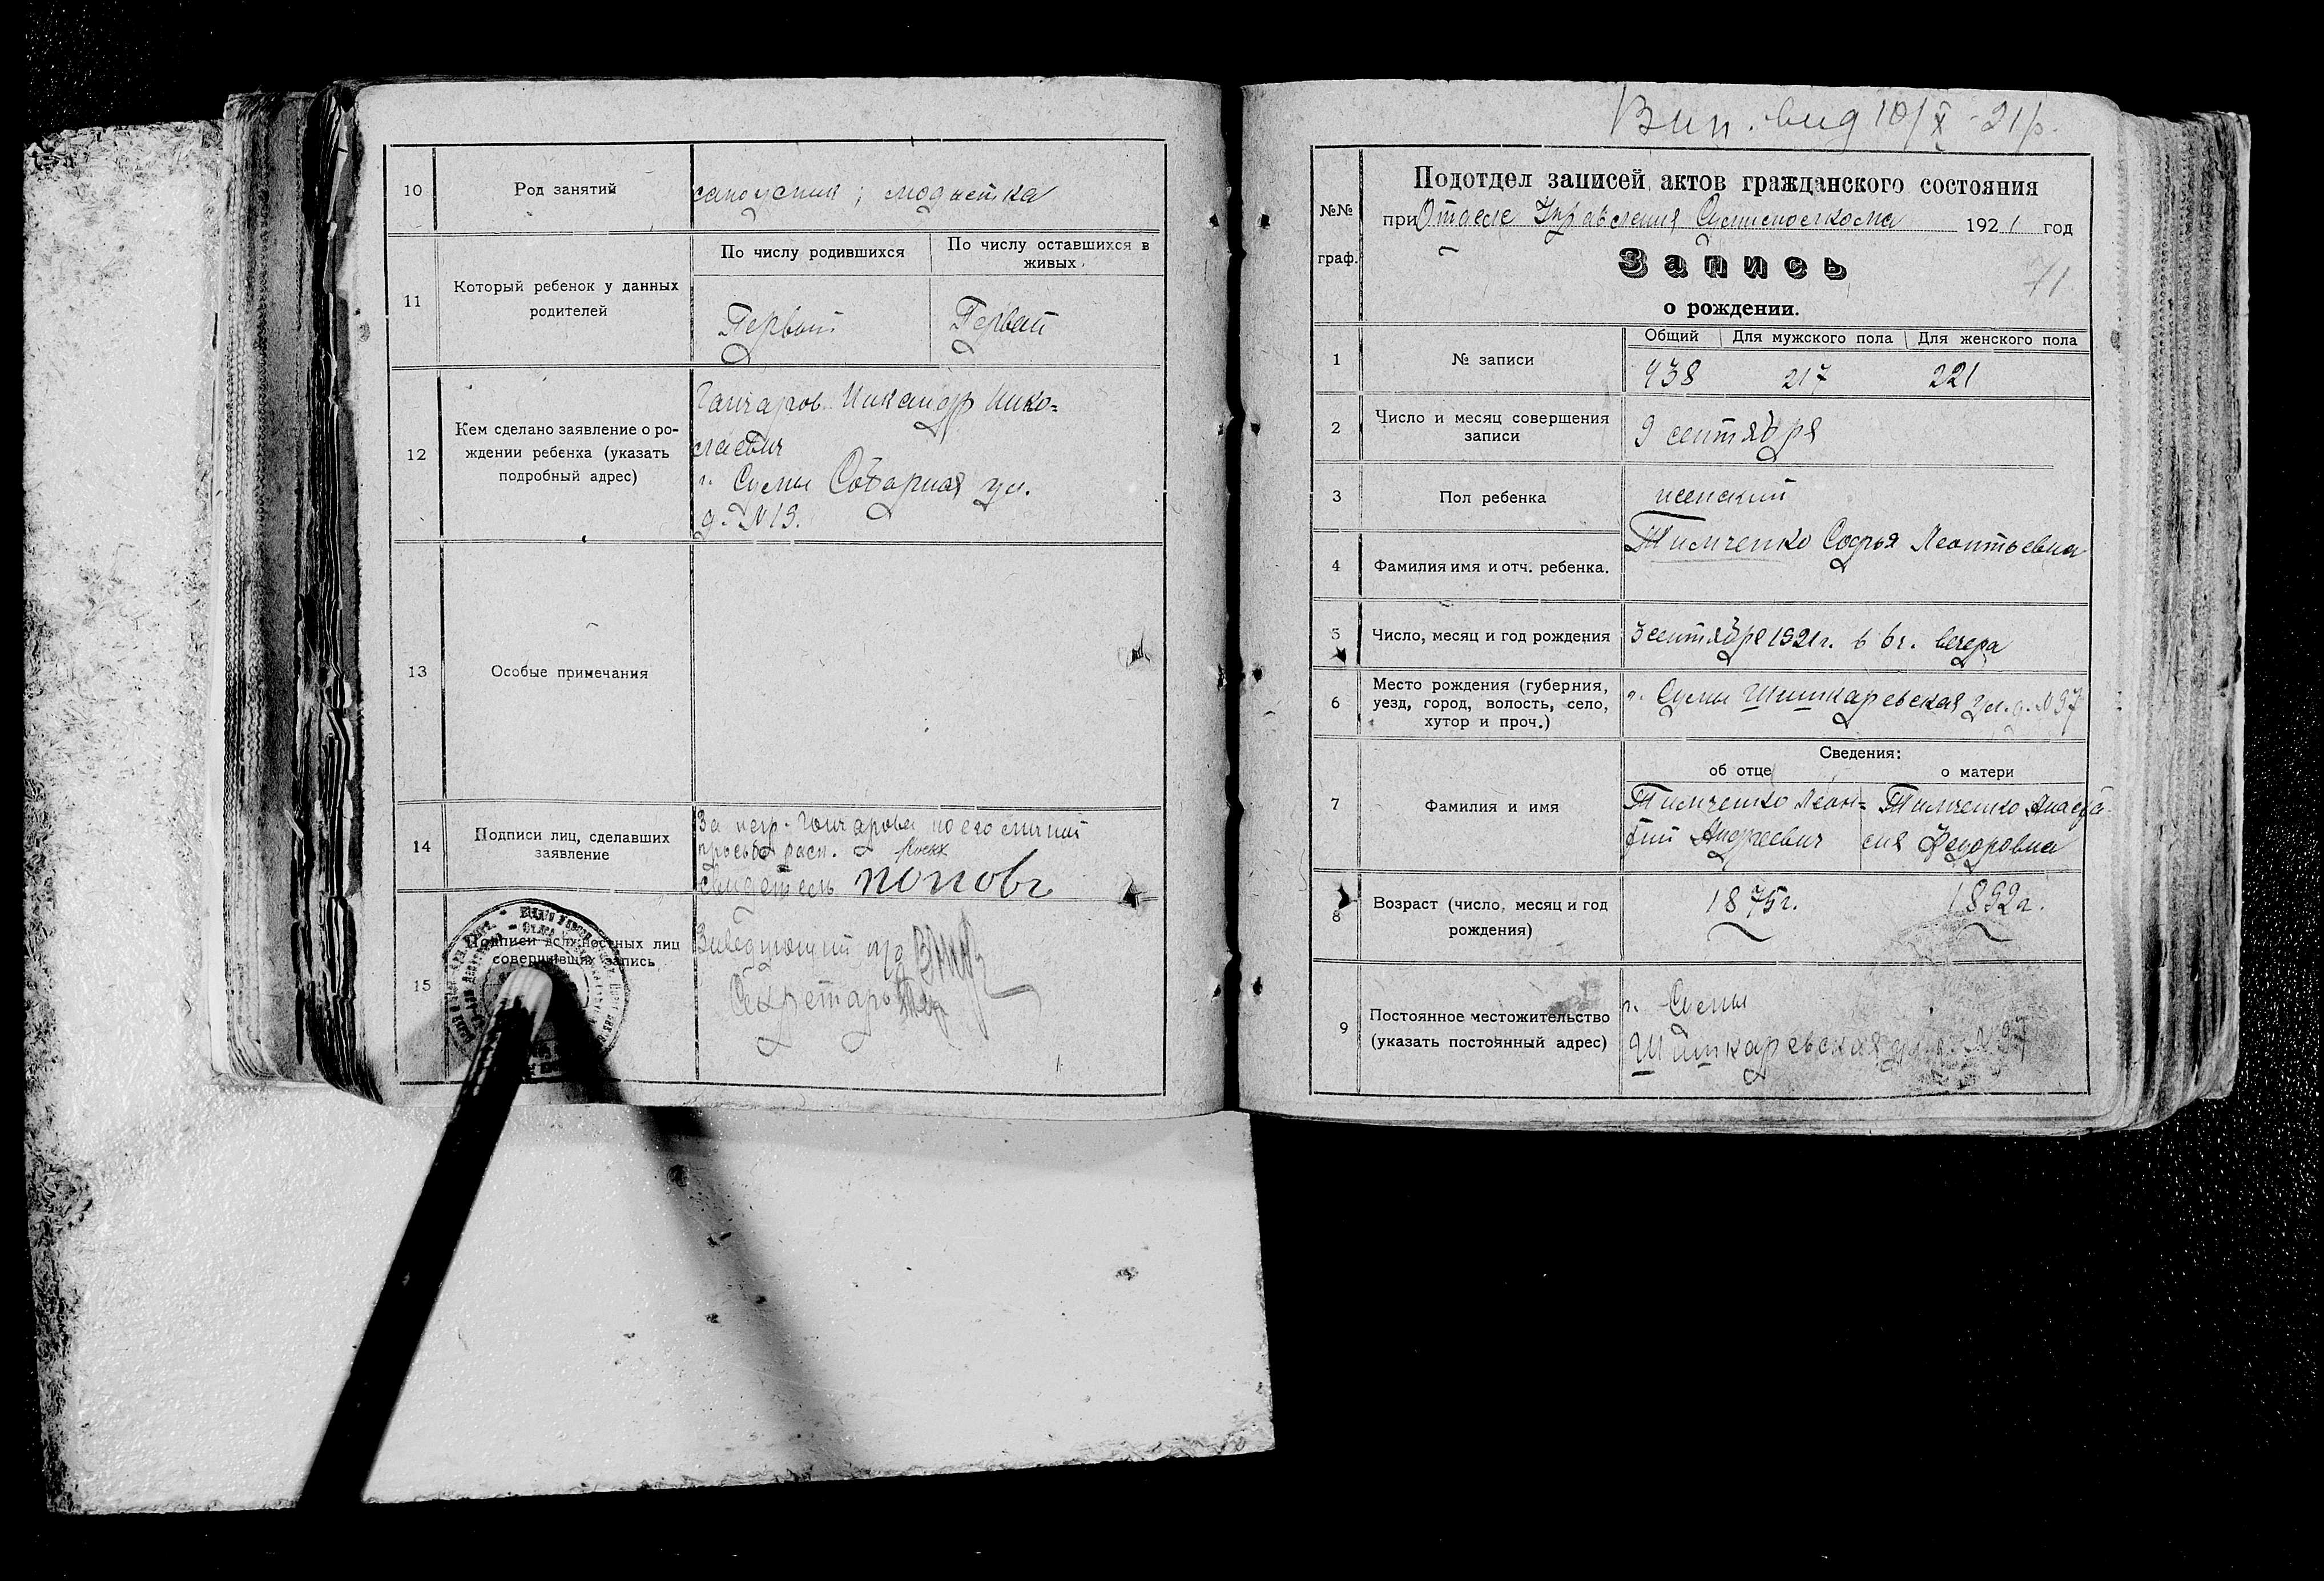 10
Род занятий
сапожник; модистка
11
Который ребенок у данных
родителей
По числу родившихся
По числу оставшихся в
живых.
Первый
Первый
12
Кем сделано заявление о ро-
ждении ребенка (указать
подробный адрес)
Гончаров Никандр Нико=
лаевич
г. Сумы Соборная ул.
д. №19.
13
Особые примечания
14
Подписи лиц, сделавших
заявление
За негр. Гончарова по его личной
просьбе расп.
свидетель поповъ
15
Подписи должностных лиц
совершивших запись
Заведующий п/о
Секретарь
Вип. вид 10/X -21р.
№№
граф.
Подотдел записей актов гражданского состояния
при Отделе Управления Сумисполкома 1921 год
Запись
71
о рождении.
1
№ записи
Общий
Для мужского пола
Для женского пола
438
217
221
2
Число и месяц совершения
записи
9 сентября
3
Пол ребенка
женский
4
Фамилия имя и отч. ребенка.
Тимченко Софья Леонтьевна
5
Число, месяц и год рождения
3 сентября 1921г. в 6 ч. вечера
6
Место рождения (губерния,
уезд, город, волость, село,
хутор и проч.)
г. Сумы Шишкаревская ул. д. №97
Сведения:
об отце
о матери
7
Фамилия и имя
Тимченко Леон=
тий Андреевич
Тимченко Анаста
сия Федоровна
8
Возраст (число, месяц и год
рождения)
1875г.
1892г.
9
Постоянное местожительство
(указать постоянный адрес)
г. Сумы
Шишкаревская ул. д. №97